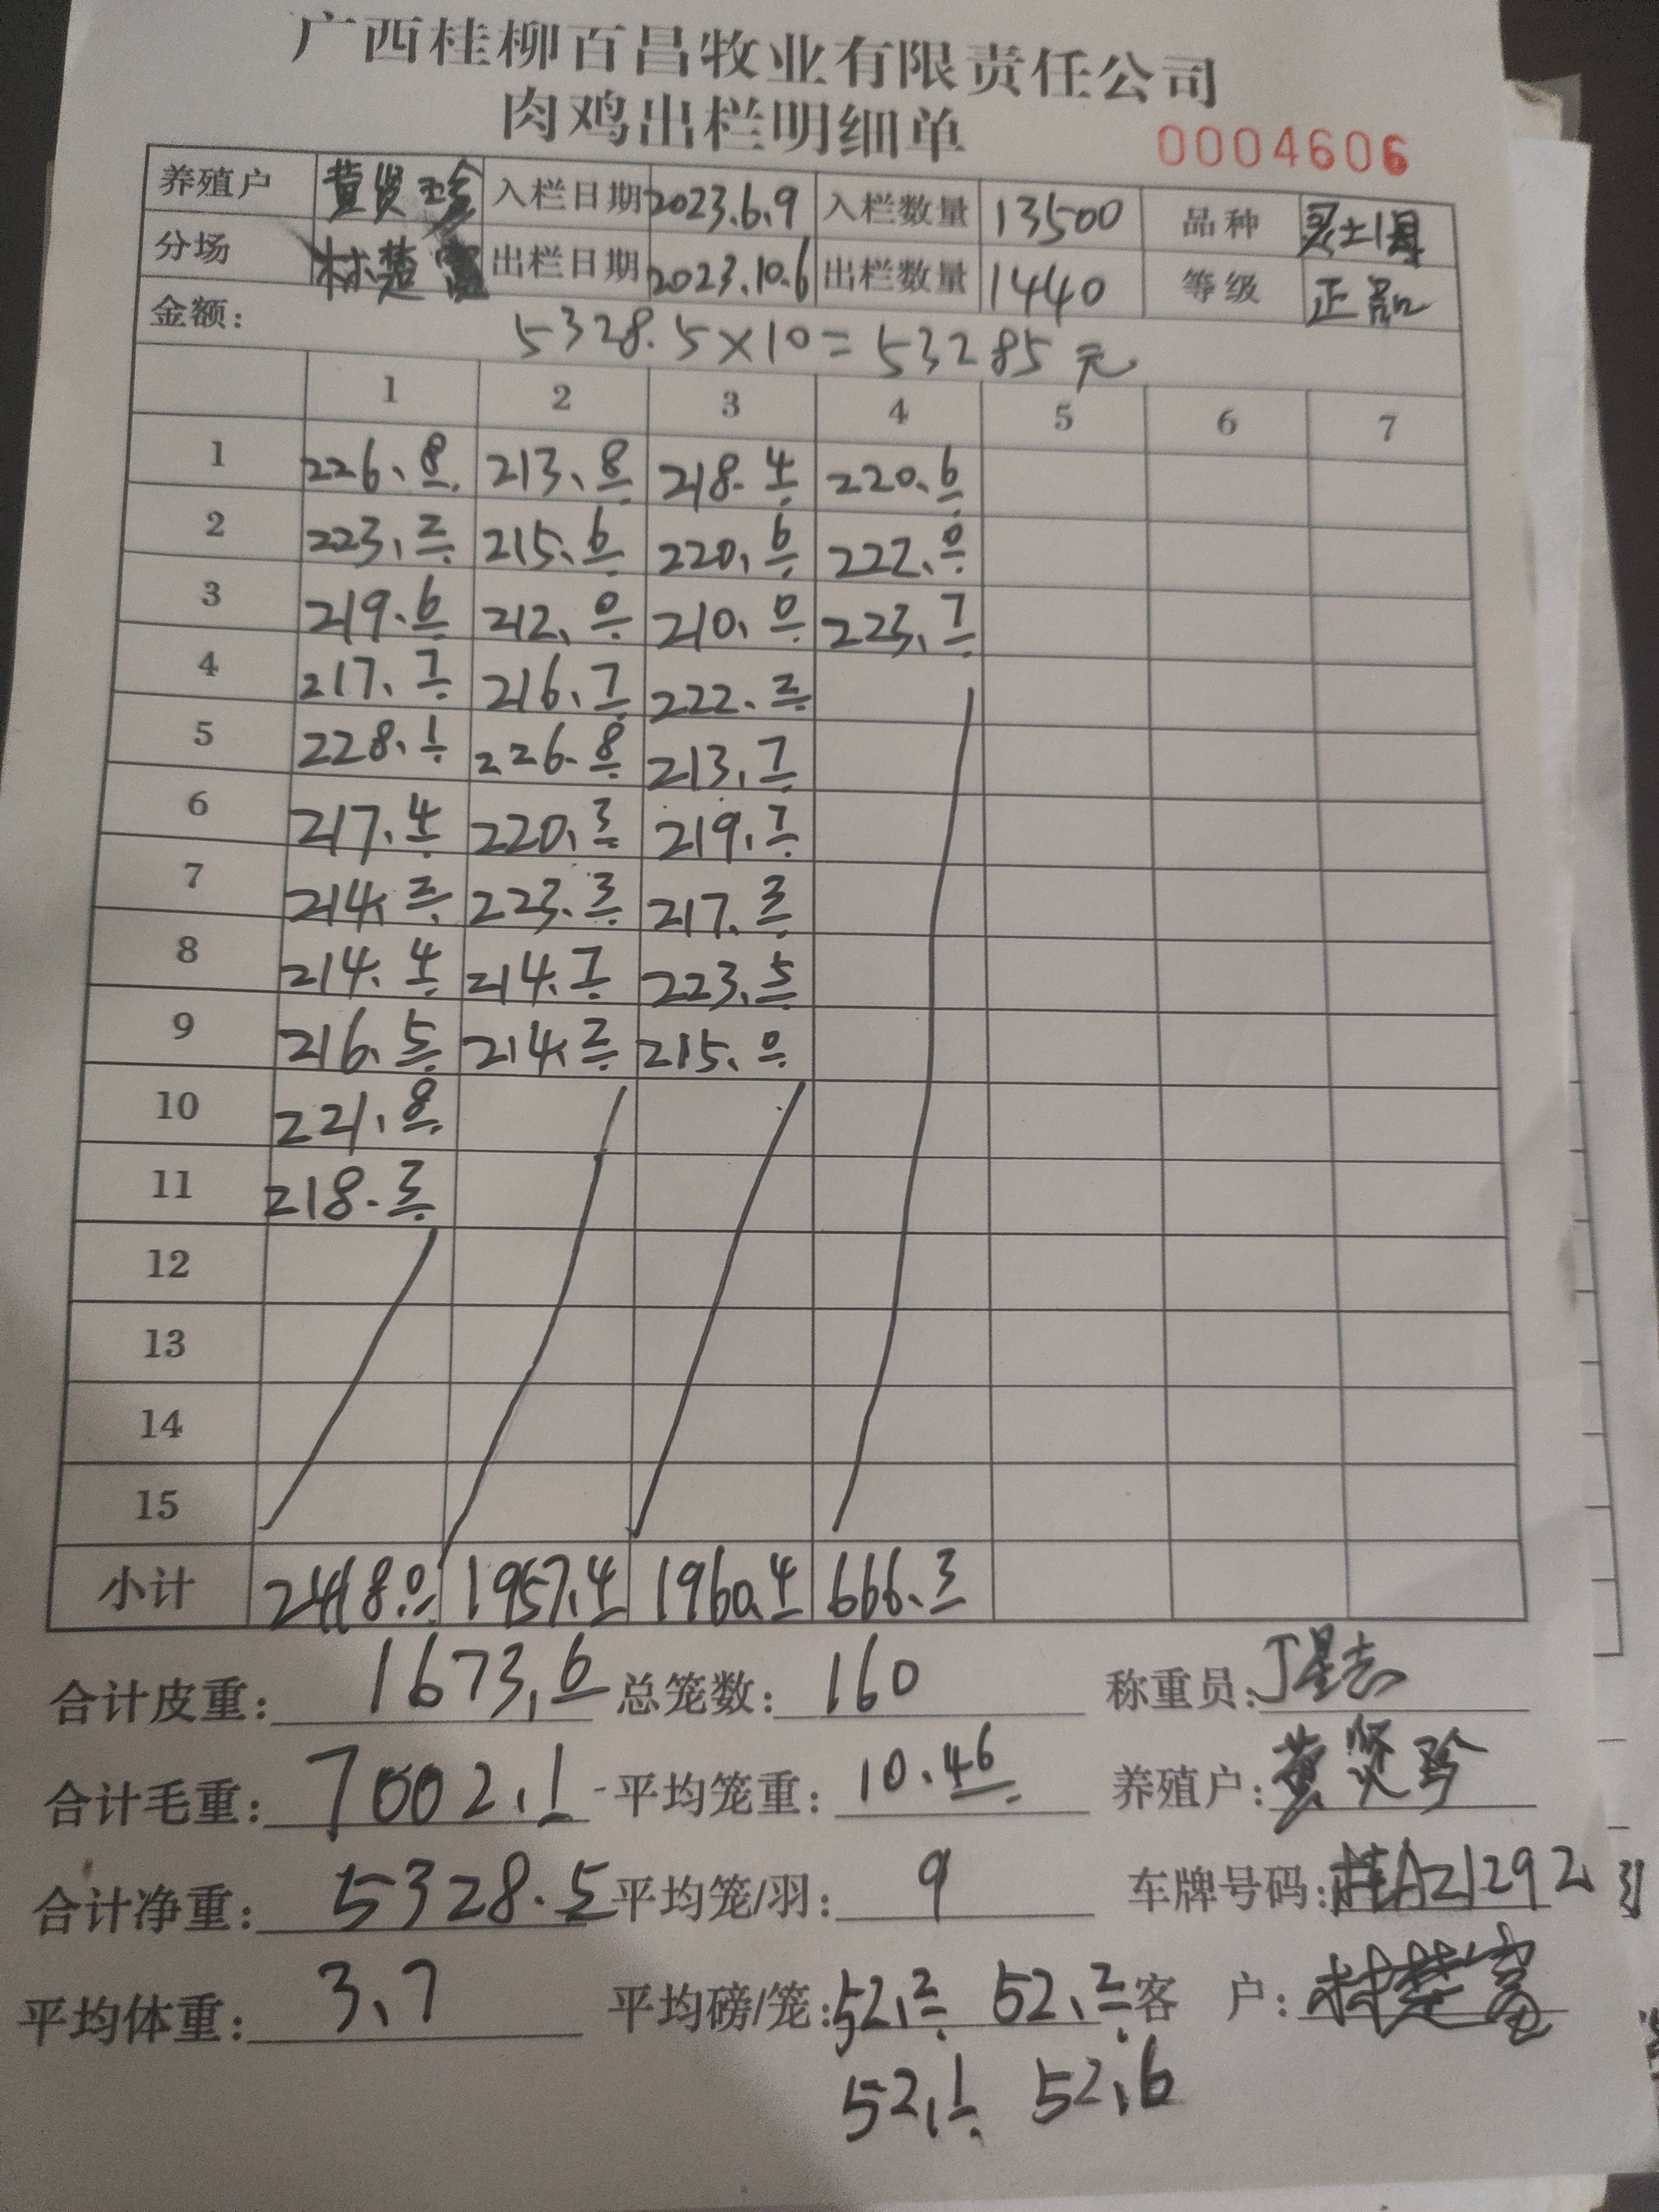 广西桂柳百昌牧业有限责任公司
肉鸡出栏明细单
0004606
养殖户 黄贤珍 入栏日期 2023.6.9 入栏数量 13500 品种
分场 林楚富 出栏日期 2023.10.6 出栏数量 1440 等级 正品
金额： 5328.5×10=53285元
1 2 3 4 5 6 7
1 226.8 213.8 218.4 220.6
2 223.2 215.6 220.6 222.0
3 219.6 212.0 210.0 223.7
4 217.7 216.7 222.2
5 228.1 226.8 213.7
6 217.4 220.3 219.7
7 214.2 223.3 217.3
8 214.4 214.7 223.5
9 216.5 214.2 215.0
10 221.8
11 218.3
12
13
14
15
小计 2418.0 1957.4 1960.4 666.3
合计皮重： 1673.6 总笼数： 160 称重员：
合计毛重： 7002.1 平均笼重： 10.46 养殖户： 黄贤珍
合计净重： 5328.5 平均笼/羽： 9 车牌号码： 桂AZ1292
平均体重： 3.7 平均磅/笼： 52.2 52.2 客 户： 林楚富
52.1 52.6